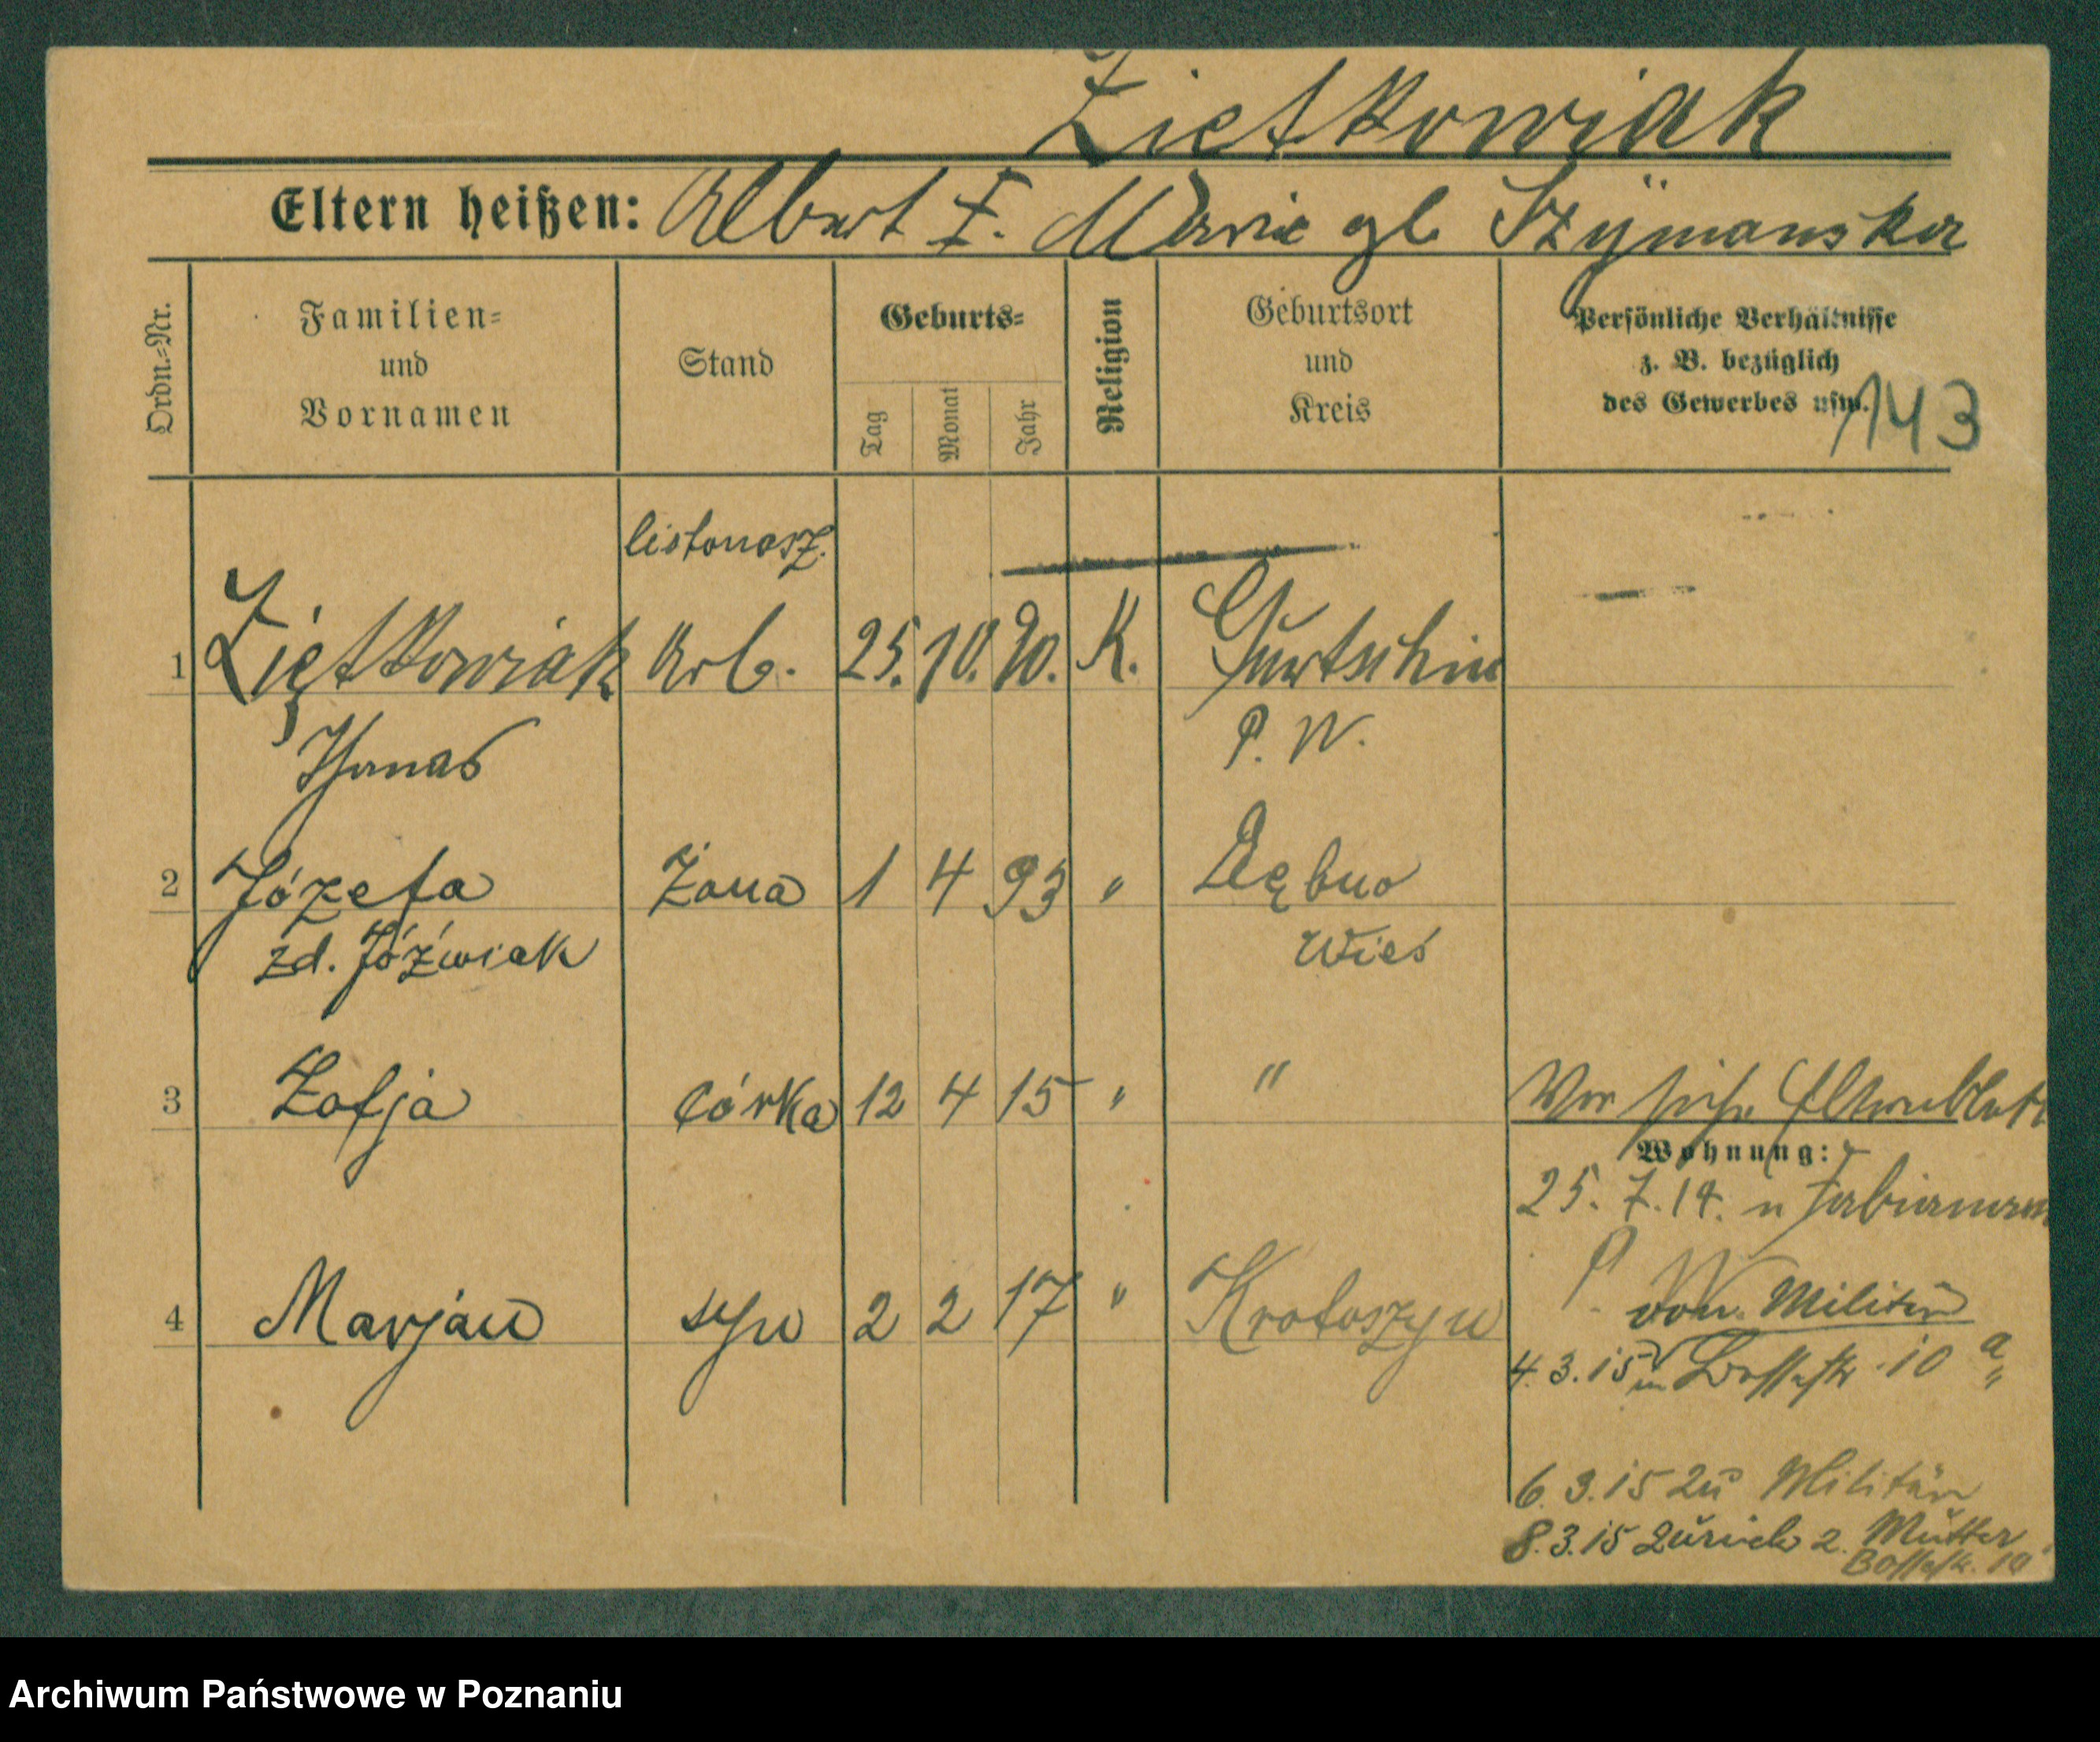 Zietkowiak
Eltern heißen: Albert Z. Marie gb Szÿmanska
Ordn.-Nr.
Familien-
und
Vornamen
Stand
Geburts-
Tag
Monat
Jahr
Religion
Geburtsort
und
Kreis
Persönliche Verhältnisse
z. B. bezüglich
des Gewerbes usw.
143
listonosz.
1 Ziętkowiak Arb. 25. 10. 90. K. Gurtschin
Thomas P. W.
2 Józefa Żona 1 4 93 " Dębno
zd. Jóźwiak Wieś
3 Zofja córka 12 4 15 " "
Wohnung:
25. 7. 14. n Fabianowo
P. W.
4 Marjan syn 2 2 17 " Krotoszyn
von Militär
4. 3. 15 10 a
6. 3. 15 zu Militär
8. 3. 15 Zurück z. Mutter
Archiwum Państwowe w Poznaniu